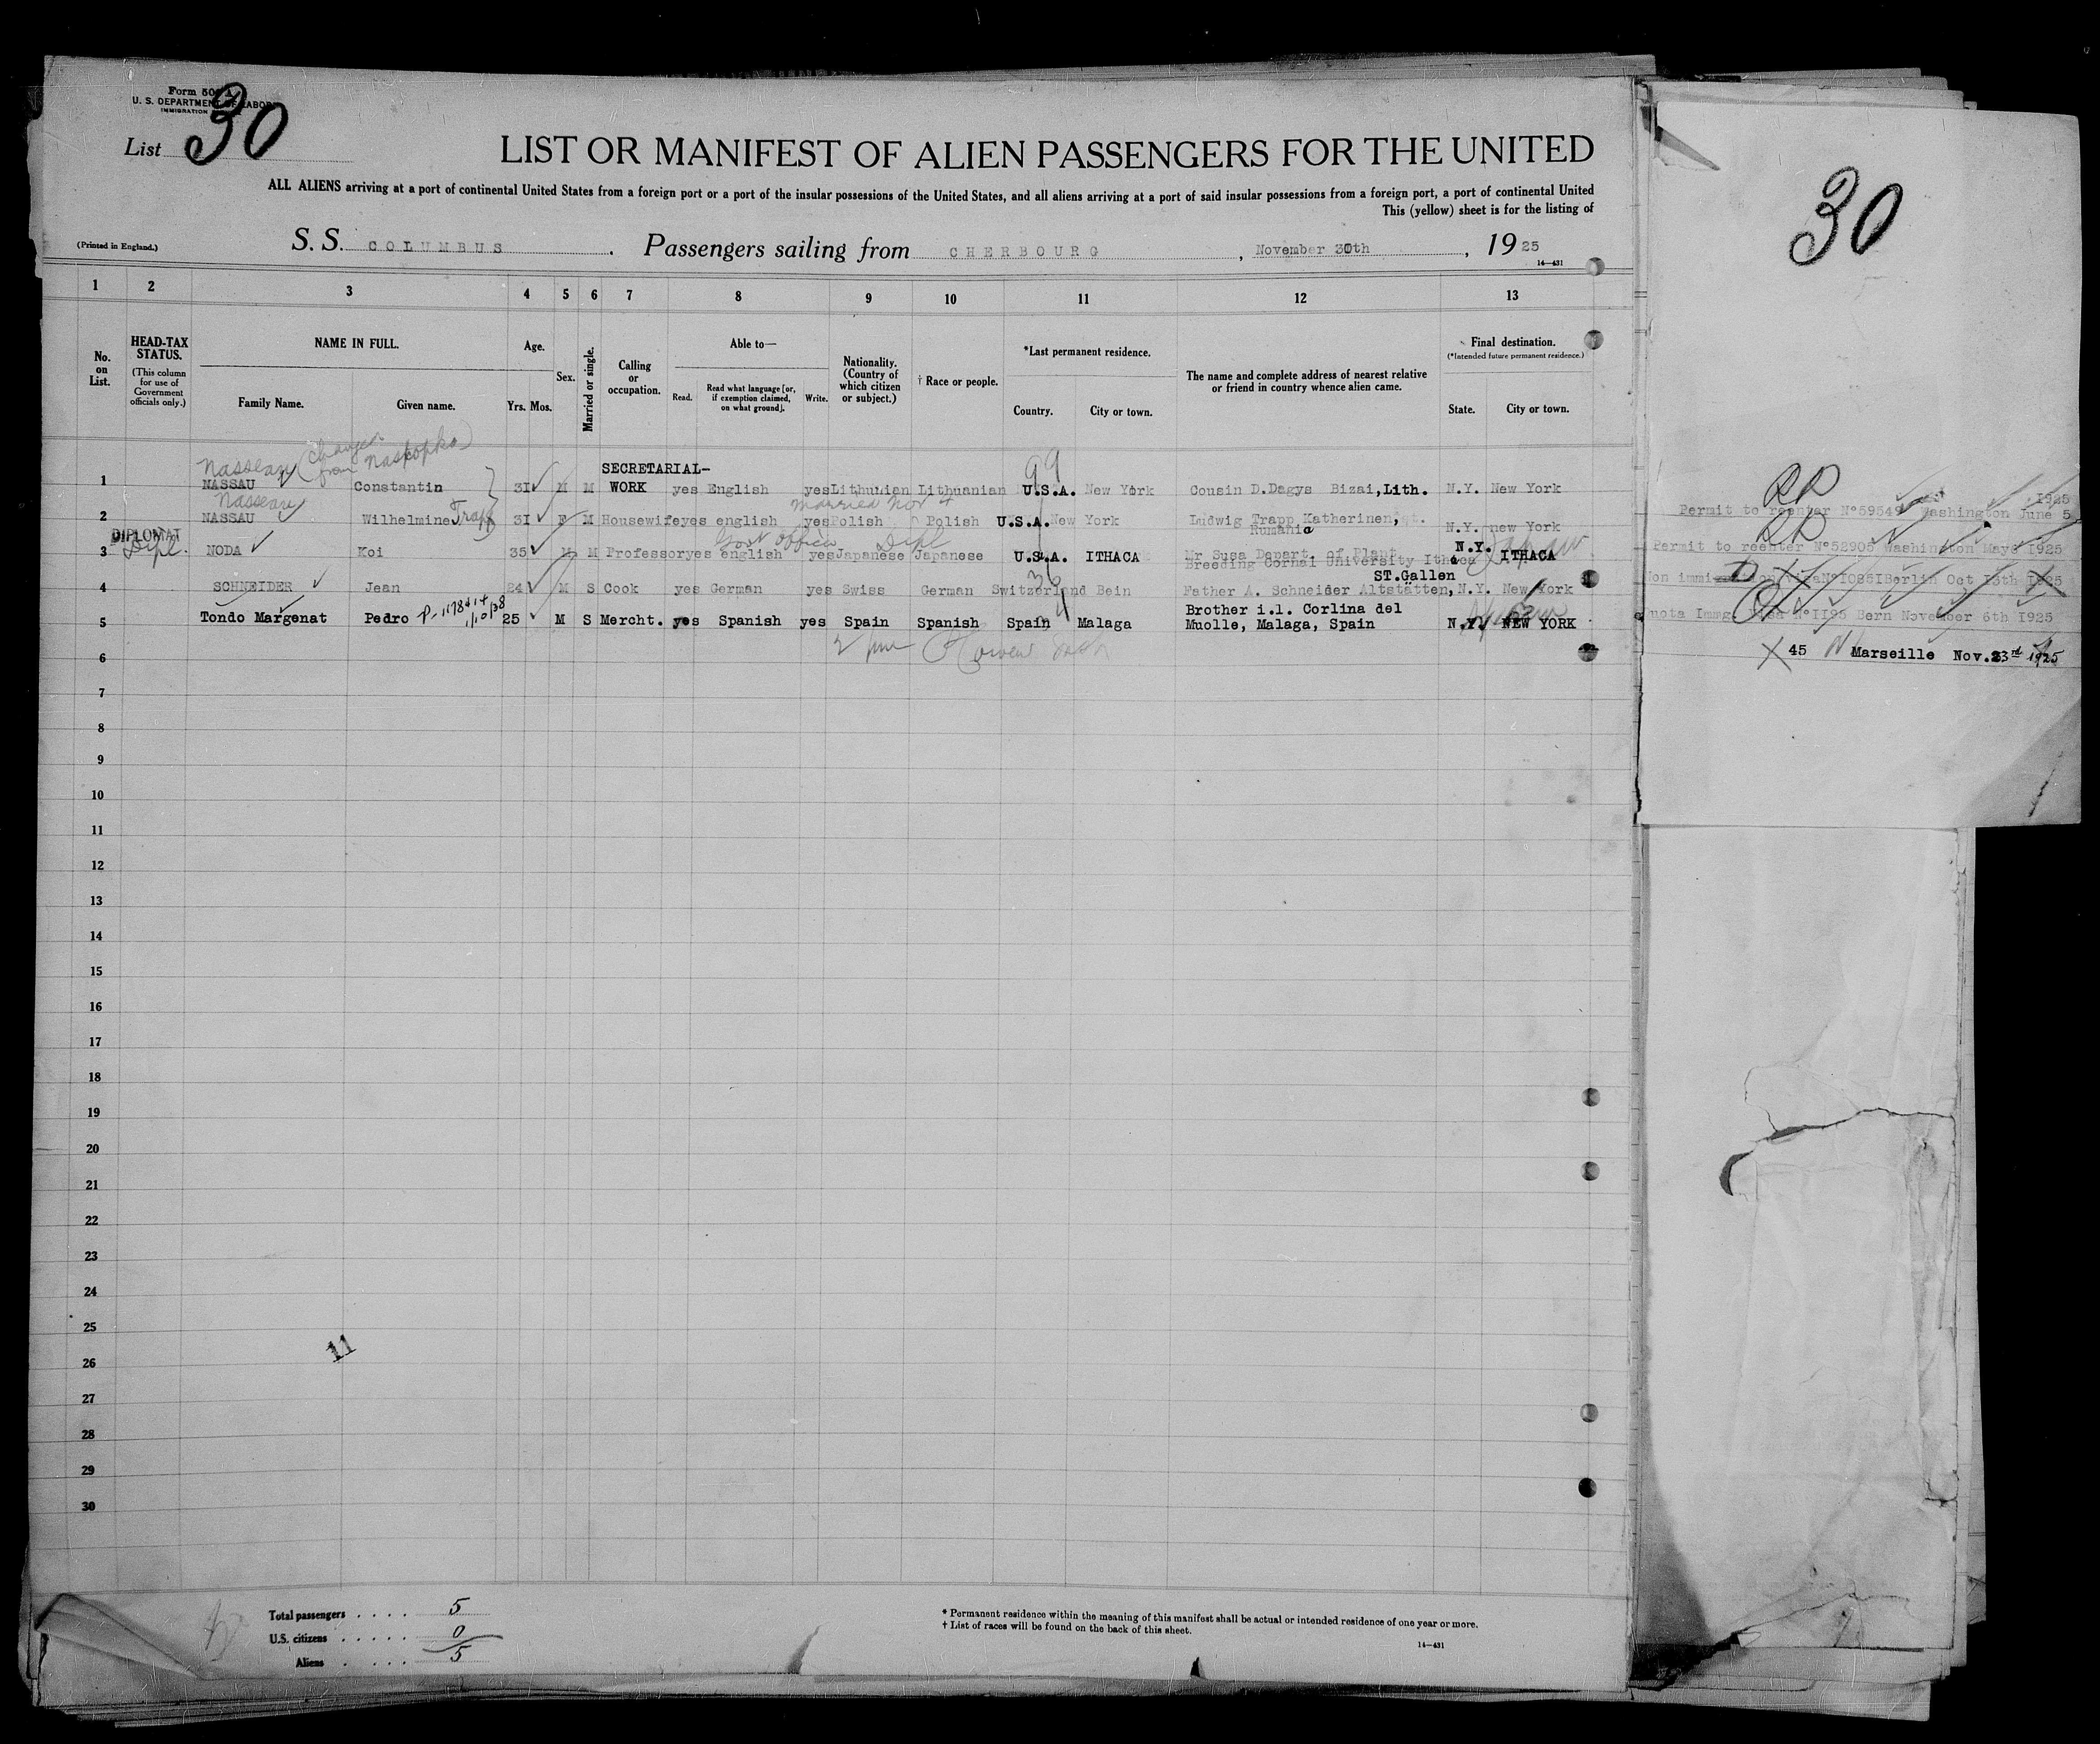 Form 500 A
U. S. DEPARTMENT OF LABOR
IMMIGRATION
List 30
LIST OR MANIFEST OF ALIEN PASSENGERS FOR THE UNITED
ALL ALIENS arriving at a port of continental United States from a foreign port or a port of the insular possessions of the United States, and all aliens arriving at a port of said insular possessions from a foreign port, a port of continental United
This (yellow) sheet is for the listing of
(Printed in England.)
S. S. COLUMBUS . Passengers sailing from CHERBOURG , November 30th , 1925
14—431
30
1 2 3 4 5 6 7 8 9 10 11 12 13
No. on List.
HEAD-TAX STATUS.
(This column for use of Government officials only.)
NAME IN FULL.
Family Name. Given name.
Age.
Yrs. Mos.
Sex.
Married or single.
Calling or occupation.
Able to—
Read. Read what language [or, if exemption claimed, on what ground]. Write.
Nationality. (Country of which citizen or subject.)
† Race or people.
*Last permanent residence.
Country. City or town.
The name and complete address of nearest relative or friend in country whence alien came.
Final destination.
(*Intended future permanent residence.)
State. City or town.
Nasseau (changed from Naskopko)
SECRETARIAL-
99
1 NASSAU Constantin 31 M M WORK yes English yes Lithunian Lithuanian U.S.A. New York Cousin D.Dagys Bizai, Lith. N.Y. New York
RP
1925
Permit to reenter Nº59549 Washington June 5
Nasseau Trapp married not
2 NASSAU Wilhelmine 31 F M Housewife yes english yes Polish Polish U.S.A. New York Ludwig Trapp Katherinen,
Rumania N.Y. new York
RP
Permit to reenter Nº52905 Washington May6 1925
DIPLOMAT
Dipl. Govt Office Dipl
3 NODA Koi 35 M M Professor yes english yes Japanese Japanese U.S.A. ITHACA Mr Susa Depart. of Plant
Breeding Cornal University Ithaca N.Y. ITHACA
Japan
Non immigration visa Nº10851 Berlin Oct 13th 1925
ST.Gallen
4 SCHNEIDER Jean 24 M S Cook yes German yes Swiss German Switzerland Bein Father A. Schneider Altstätten, N.Y. New York
Quota Immg. Visa Nº1195 Bern November 6th 1925
5 Tondo Margenat Pedro 25 M S Mercht. yes Spanish yes Spain Spanish Spain Malaga Brother i.l. Corlina del
Muolle, Malaga, Spain N.Y. NEW YORK
45 Marseille Nov.23rd 1925
6
7
8
9
10
11
12
13
14
15
16
17
18
19
20
21
22
23
24
25
11
26
27
28
29
30
Total passengers . . . . 5
U.S. citizens . . . . . 0
Aliens . . . . . 5
* Permanent residence within the meaning of this manifest shall be actual or intended residence of one year or more.
† List of races will be found on the back of this sheet.
14—431